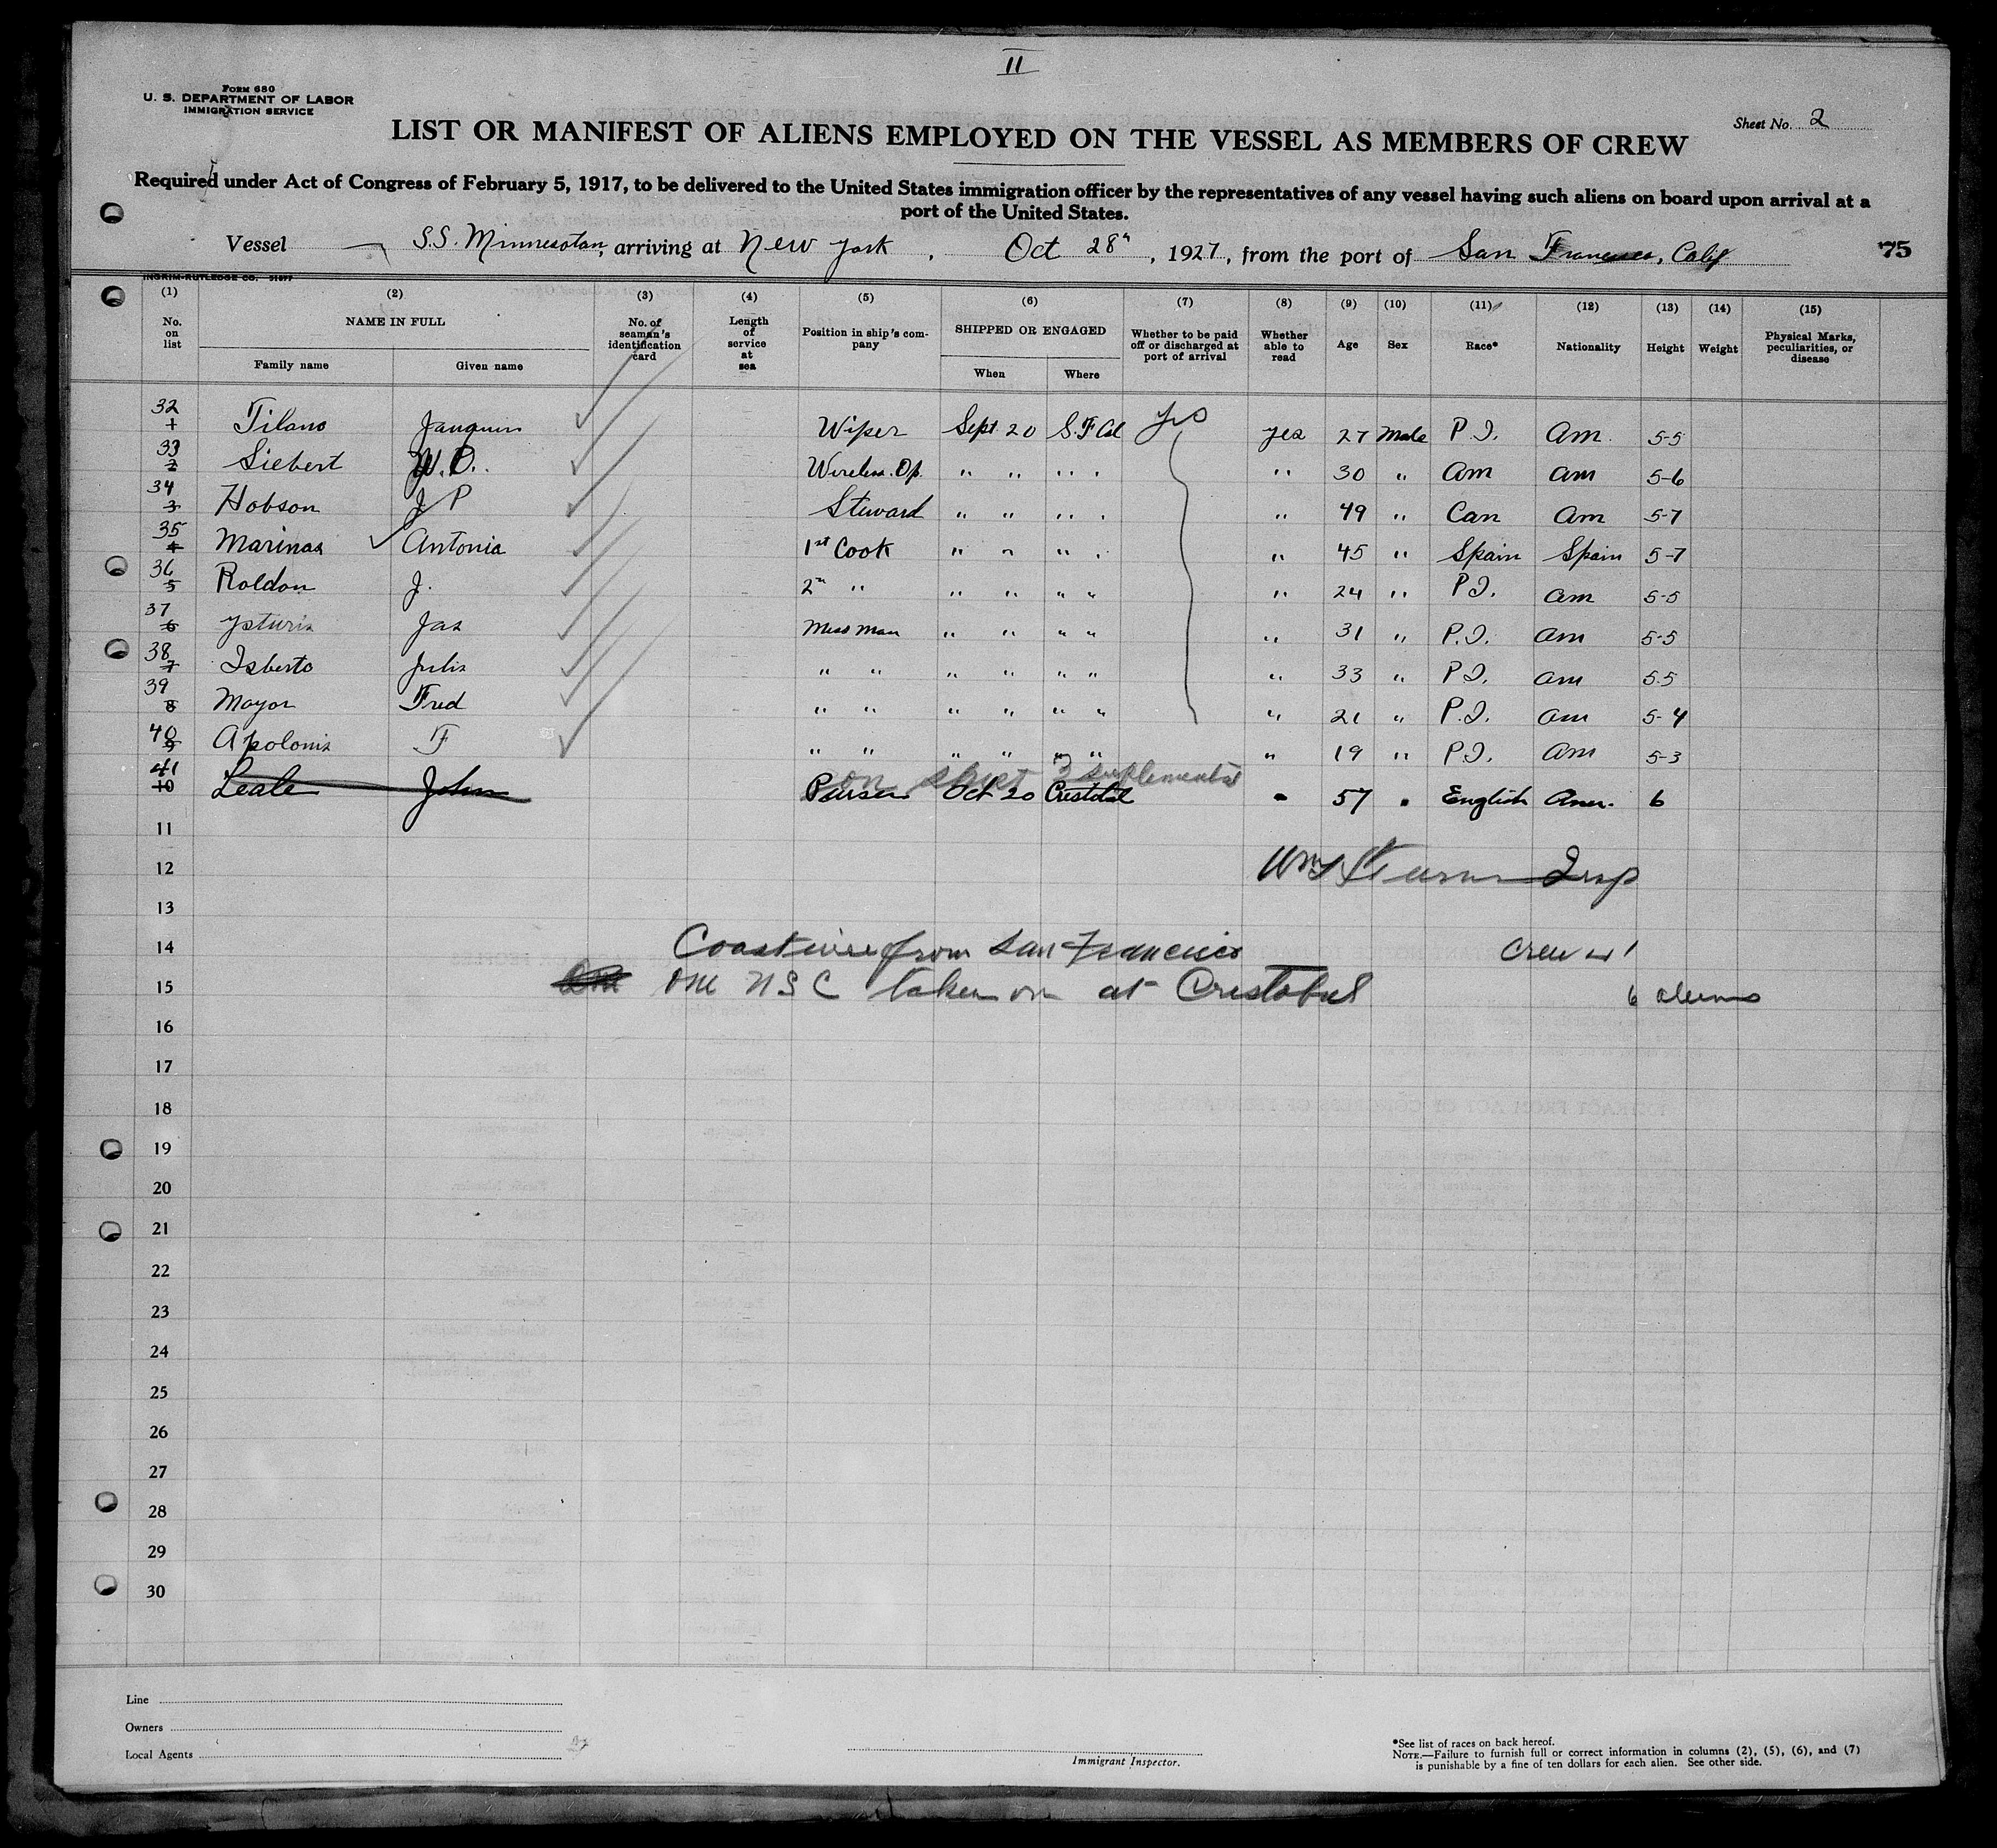 II
Form 680
U. S. DEPARTMENT OF LABOR
IMMIGRATION SERVICE
Sheet No. 2
LIST OR MANIFEST OF ALIENS EMPLOYED ON THE VESSEL AS MEMBERS OF CREW
Required under Act of Congress of February 5, 1917, to be delivered to the United States immigration officer by the representatives of any vessel having such aliens on board upon arrival at a
port of the United States.
Vessel S.S. Minnesotan, arriving at New York, Oct 28th, 1927, from the port of San Francisco, Calif 75
INGRIM-RUTLEDGE CO.
(1) (2) (3) (4) (5) (6) (7) (8) (9) (10) (11) (12) (13) (14) (15)
No. on list NAME IN FULL Family name Given name No. of seaman's identification card Length of service at sea Position in ship's company SHIPPED OR ENGAGED When Where Whether to be paid off or discharged at port of arrival Whether able to read Age Sex Race* Nationality Height Weight Physical Marks, peculiarities, or disease
32 1 Tilano Wiper Sept 20 S.F Cal yes yes 27 Male P.I. Am. 5-5
33 2 Siebert W.O. Wireless. Op. " " " " " 30 " Am Am 5-6
34 3 Hobson J P Steward " " " " " 49 " Can Am 5-7
35 4 Marinas Antonia 1st Cook " " " " " 45 " Spain Spain 5-7
36 5 Roldon J. 2nd " " " " " " 24 " P.I. Am 5-5
37 6 Ysturis Jas Mess man " " " " " 31 " P.I. Am 5-5
38 7 Isberto Julis " " " " " " " 33 " P.I. Am 5-5
39 8 Mayor Fred " " " " " " " 21 " P.I. Am 5-4
40 9 Apolonis F " " " " " " " 19 " P.I. Am 5-3
on sheet 3 suplemental
41 10 Leale John Purser Oct 20 Cristobal " 57 " English Amer. 6
11
12 Insp
13
14 Coastwise from San Francisco Crew 41
15 one USC taken on at Cristobal 6 aliens
16
17
18
19
20
21
22
23
24
25
26
27
28
29
30
Line
Owners
Local Agents
Immigrant Inspector.
*See list of races on back hereof.
NOTE.—Failure to furnish full or correct information in columns (2), (5), (6), and (7)
is punishable by a fine of ten dollars for each alien. See other side.